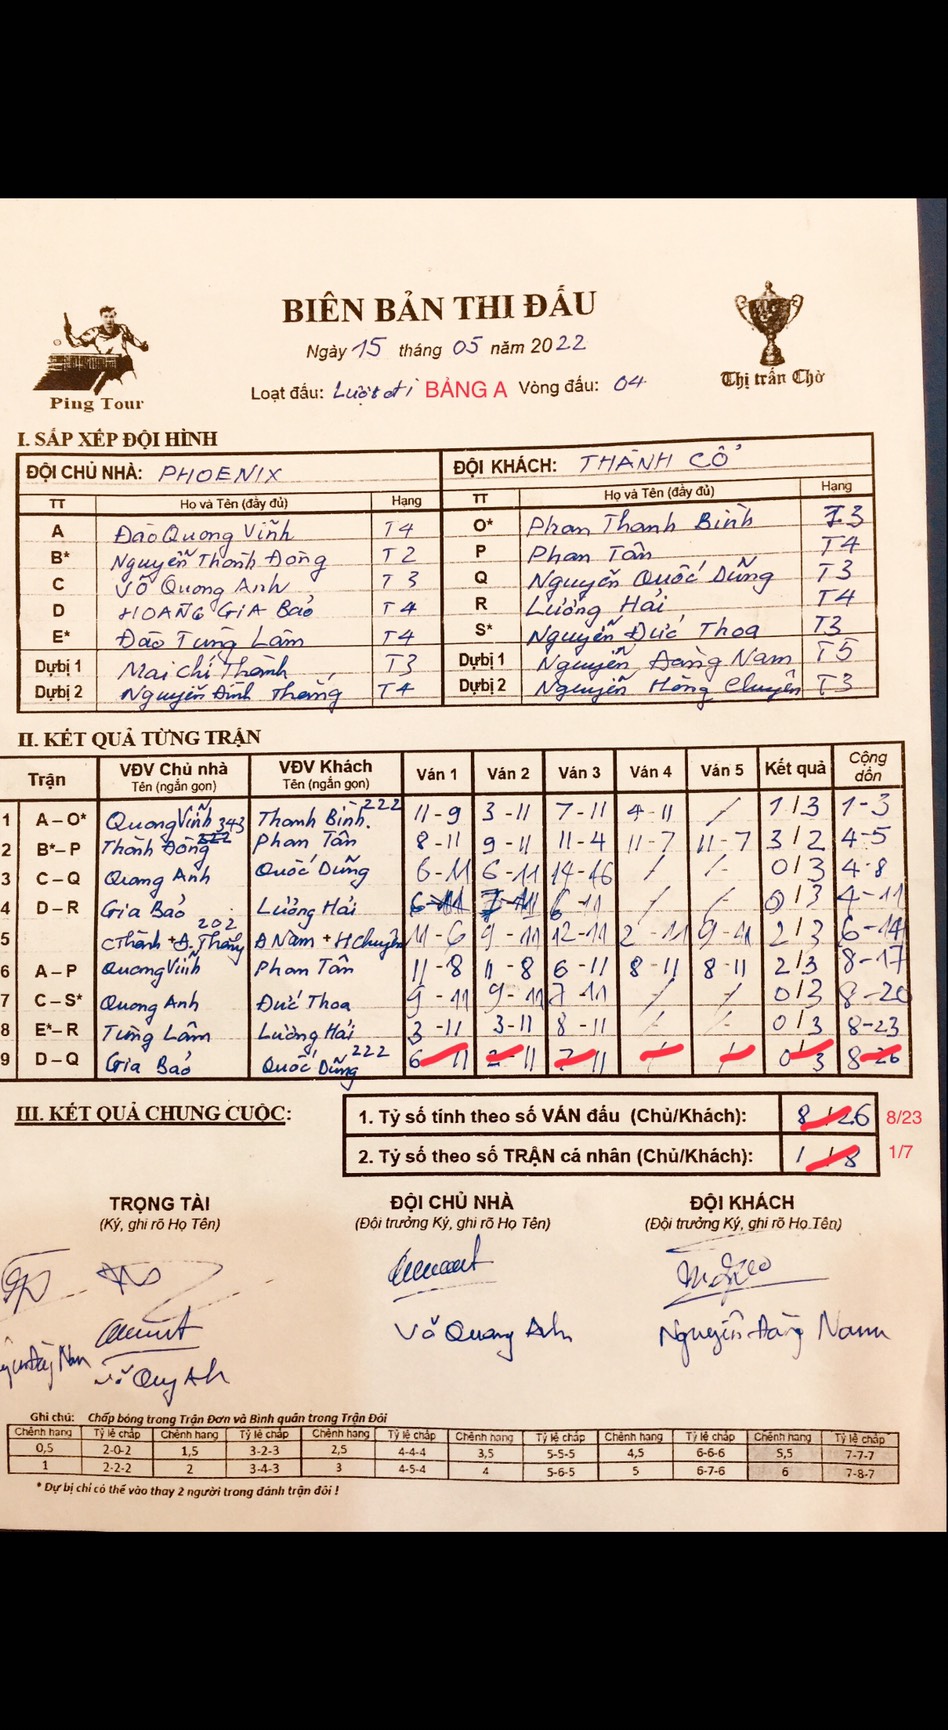 BIÊN BẢN THI ĐẤU
Ngày 15 tháng 05 năm 2022
Loạt đấu: Lượt đi BẢNG A Vòng đấu: 04
Ping Tour
Thị trấn Chờ
I. SẮP XẾP ĐỘI HÌNH
ĐỘI CHỦ NHÀ: PHOENIX ĐỘI KHÁCH: THÀNH CỔ
TT Họ và Tên (đầy đủ) Hạng TT Họ và Tên (đầy đủ) Hạng
A Đào Quang Vinh T4 O* Phan Thanh Bình T3
B* Nguyễn Thành Đông T2 P Phan Tân T4
C Võ Quang Anh T3 Q Nguyễn Quốc Dũng T3
D HOÀNG GIA BẢO T4 R Lương Hải T4
E* Đào Tùng Lâm T4 S* Nguyễn Đức Thoa T3
Dựbị 1 Mai Chí Thành T3 Dựbị 1 Nguyễn Đăng Nam T5
Dựbị 2 Nguyễn Đình Thắng T4 Dựbị 2 Nguyễn Hồng Chuyên T3
II. KẾT QUẢ TỪNG TRẬN
Trận VĐV Chủ nhà Tên (ngắn gọn) VĐV Khách Tên (ngắn gọn) Ván 1 Ván 2 Ván 3 Ván 4 Ván 5 Kết quả Cộng dồn
1 A – O* Quang Vinh Thanh Bình 222 11-9 3-11 7-11 4-11 / 1/3 1-3
2 B* – P Thành Đông 343 222 Phan Tân 8-11 9-11 11-4 11-7 11-7 3/2 4-5
3 C – Q Quang Anh Quốc Dũng 6-11 6-11 14-16 / / 0/3 4-8
4 D – R Gia Bảo Lương Hải 6-11 7-11 6-11 / / 0/3 4-11
5 CThành + Đ.Thắng 202 Đ Nam + H Chuyên 11-6 9-11 12-11 2-11 9-11 2/3 6-14
6 A – P Quang Vinh Phan Tân 11-8 11-8 6-11 8-11 8-11 2/3 8-17
7 C – S* Quang Anh Đức Thoa 9-11 9-11 7-11 / / 0/3 8-20
8 E* – R Tùng Lâm Lương Hải 3-11 3-11 8-11 / / 0/3 8-23
9 D – Q Gia Bảo Quốc Dũng 222 6-11 2-11 7-11 / / 0/3 8-26
III. KẾT QUẢ CHUNG CUỘC:
1. Tỷ số tính theo số VÁN đấu (Chủ/Khách): 8/26 8/23
2. Tỷ số theo số TRẬN cá nhân (Chủ/Khách): 1/8 1/7
TRỌNG TÀI ĐỘI CHỦ NHÀ ĐỘI KHÁCH
(Ký, ghi rõ Họ Tên) (Đội trưởng Ký, ghi rõ Họ Tên) (Đội trưởng Ký, ghi rõ Họ Tên)
Võ Quang Anh Nguyễn Đăng Nam
Võ Quang Anh
Ghi chú: Chấp bóng trong Trận Đơn và Bình quân trong Trận Đôi
Chênh hạng Tỷ lệ chấp Chênh hạng Tỷ lệ chấp Chênh hạng Tỷ lệ chấp Chênh hạng Tỷ lệ chấp Chênh hạng Tỷ lệ chấp Chênh hạng Tỷ lệ chấp
0,5 2-0-2 1,5 3-2-3 2,5 4-4-4 3,5 5-5-5 4,5 6-6-6 5,5 7-7-7
1 2-2-2 2 3-4-3 3 4-5-4 4 5-6-5 5 6-7-6 6 7-8-7
* Dự bị chỉ có thể vào thay 2 người trong đánh trận đôi !